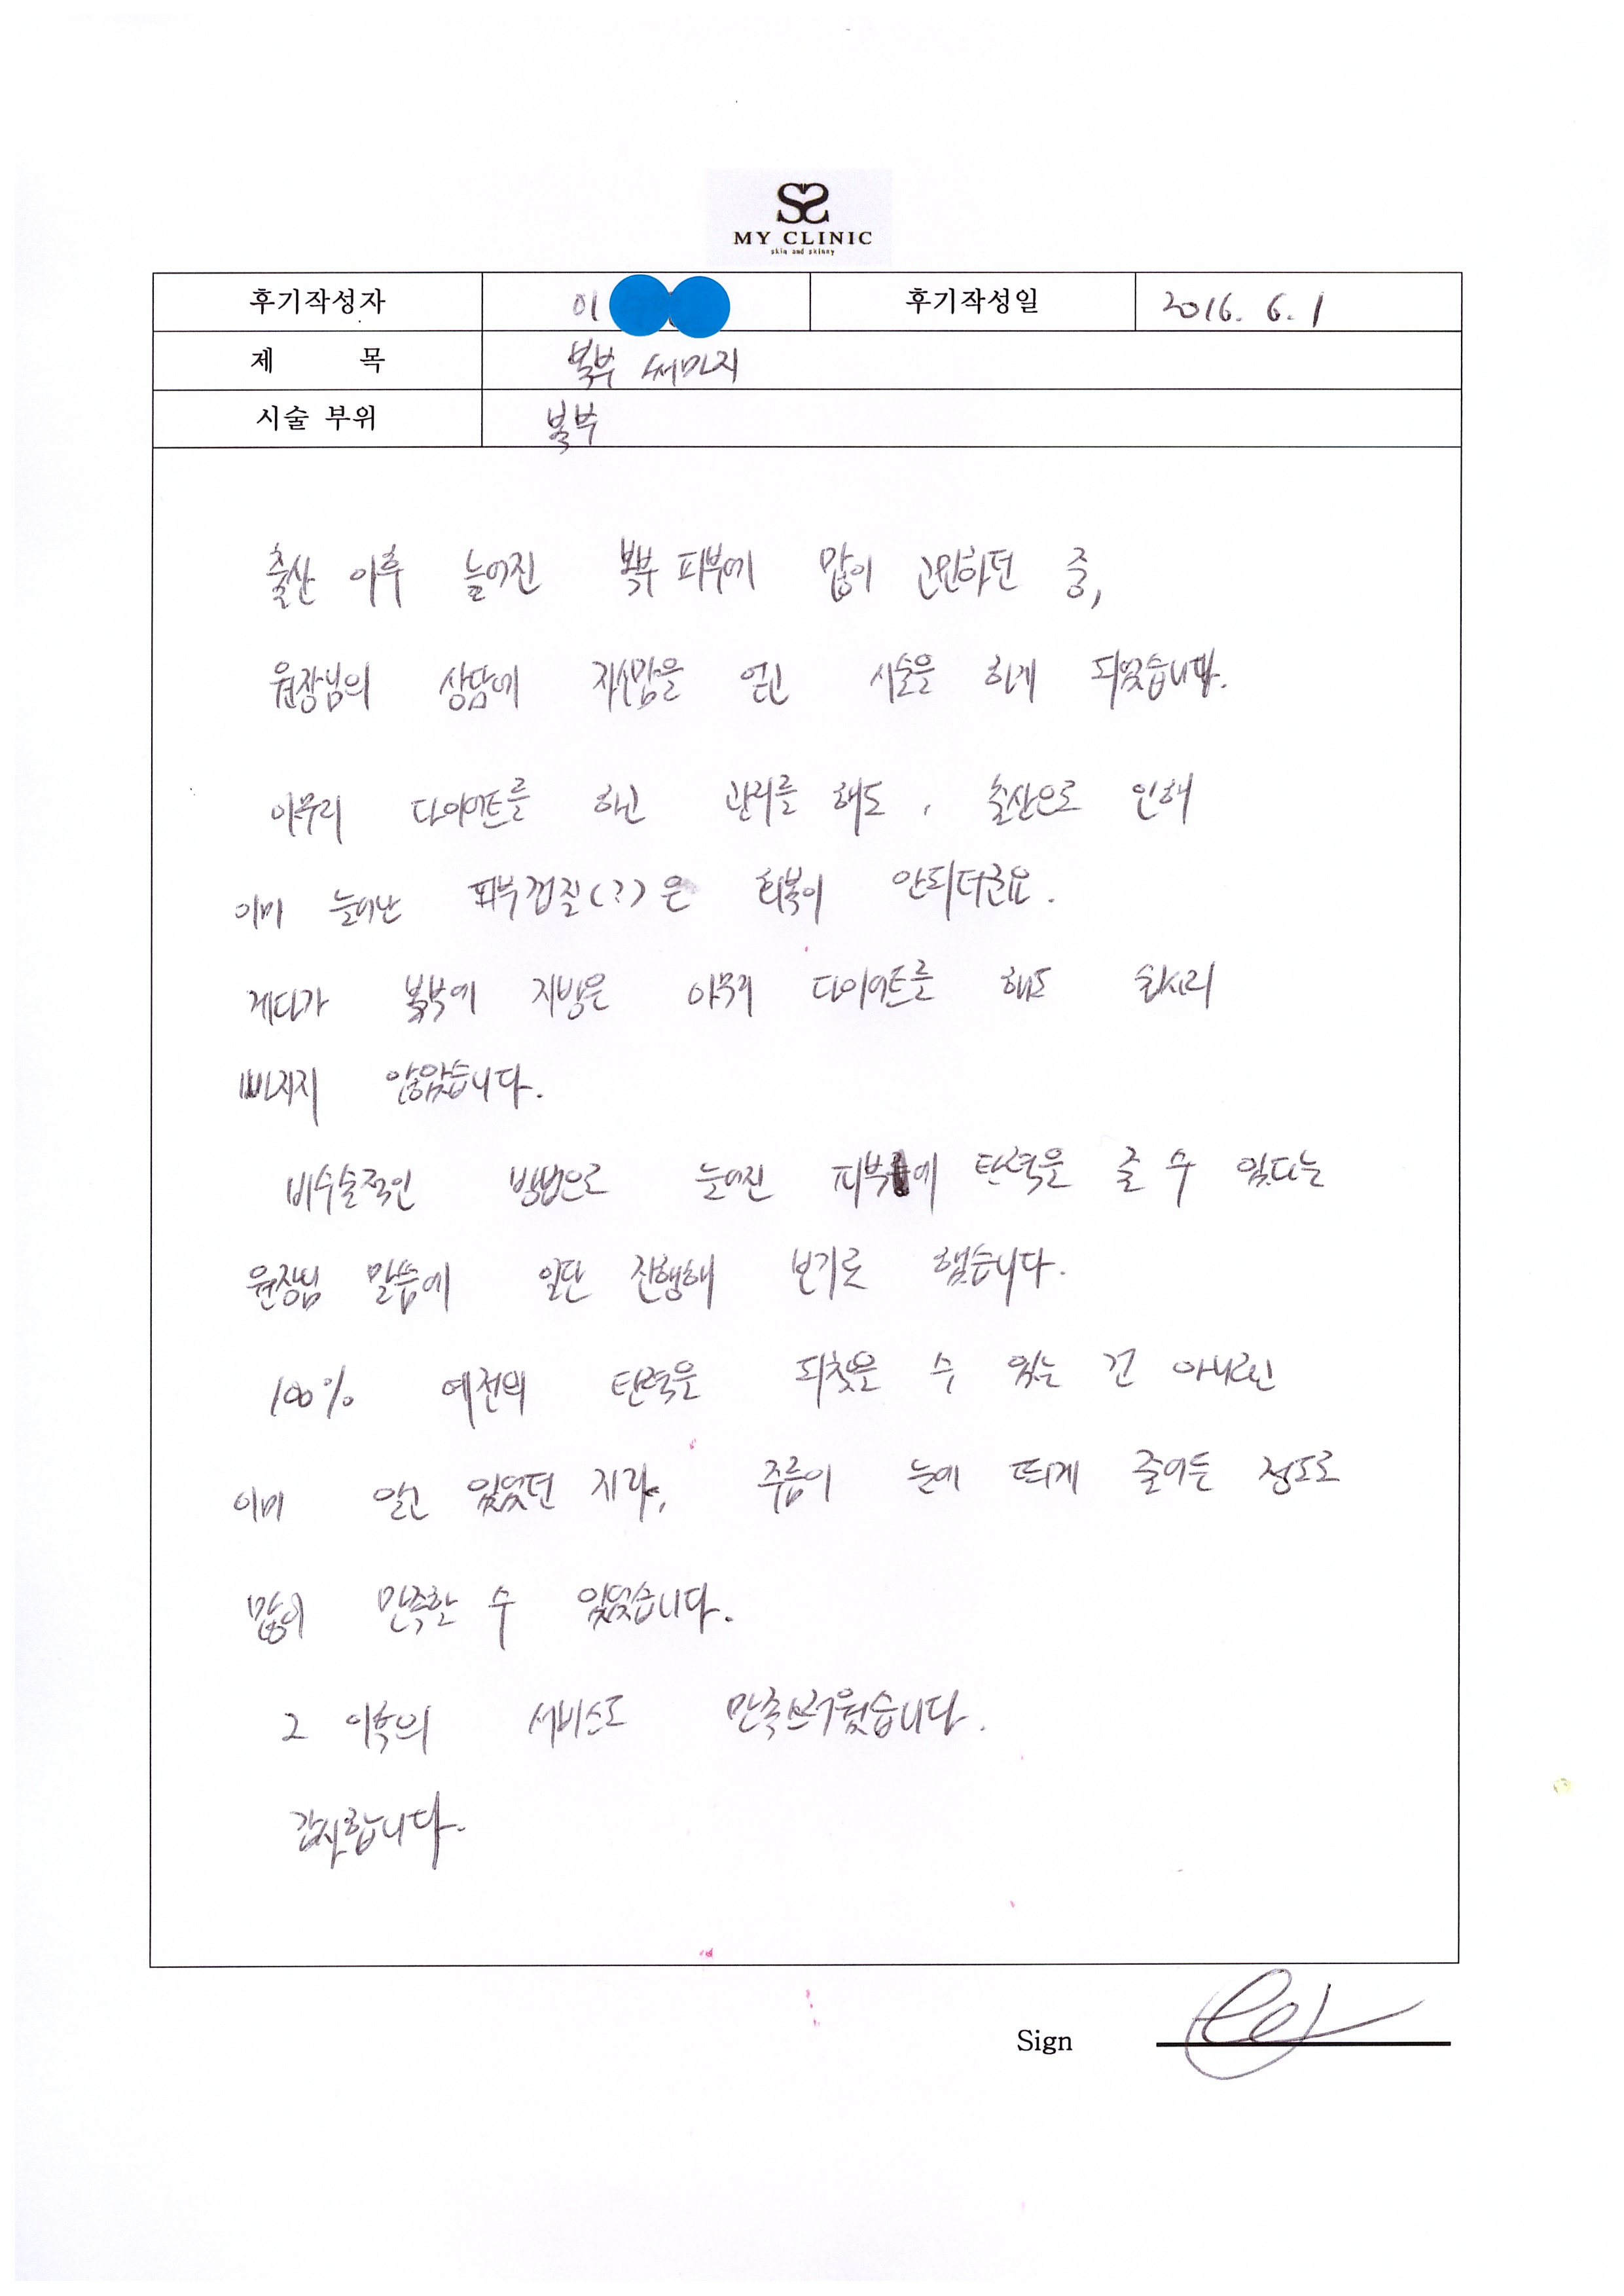 SS
MY CLINIC
skin and skinny
후기작성자 이 후기작성일 2016. 6. 1
제 목 복부 써마지
시술 부위 복부
출산 이후 늘어진 복부 피부에 많이 고민하던 중,
원장님의 상담에 자신감을 얻고 시술을 하게 되었습니다.
아무리 다이어트를 하고 관리를 해도, 출산으로 인해
이미 늘어난 피부껍질(?)은 회복이 안되더군요.
게다가 복부에 지방은 아무리 다이어트를 해도 쉽사리
빠지지 않았습니다.
비수술적인 방법으로 늘어진 피부에 탄력을 줄 수 있다는
원장님 말씀에 일단 진행해 보기로 했습니다.
100% 예전의 탄력을 되찾을 수 있는 건 아니라곤
이미 알고 있었던 지라, 주름이 눈에 띄게 줄어든 정도로
많이 만족할 수 있었습니다.
그 이후의 서비스도 만족스러웠습니다.
감사합니다.
Sign